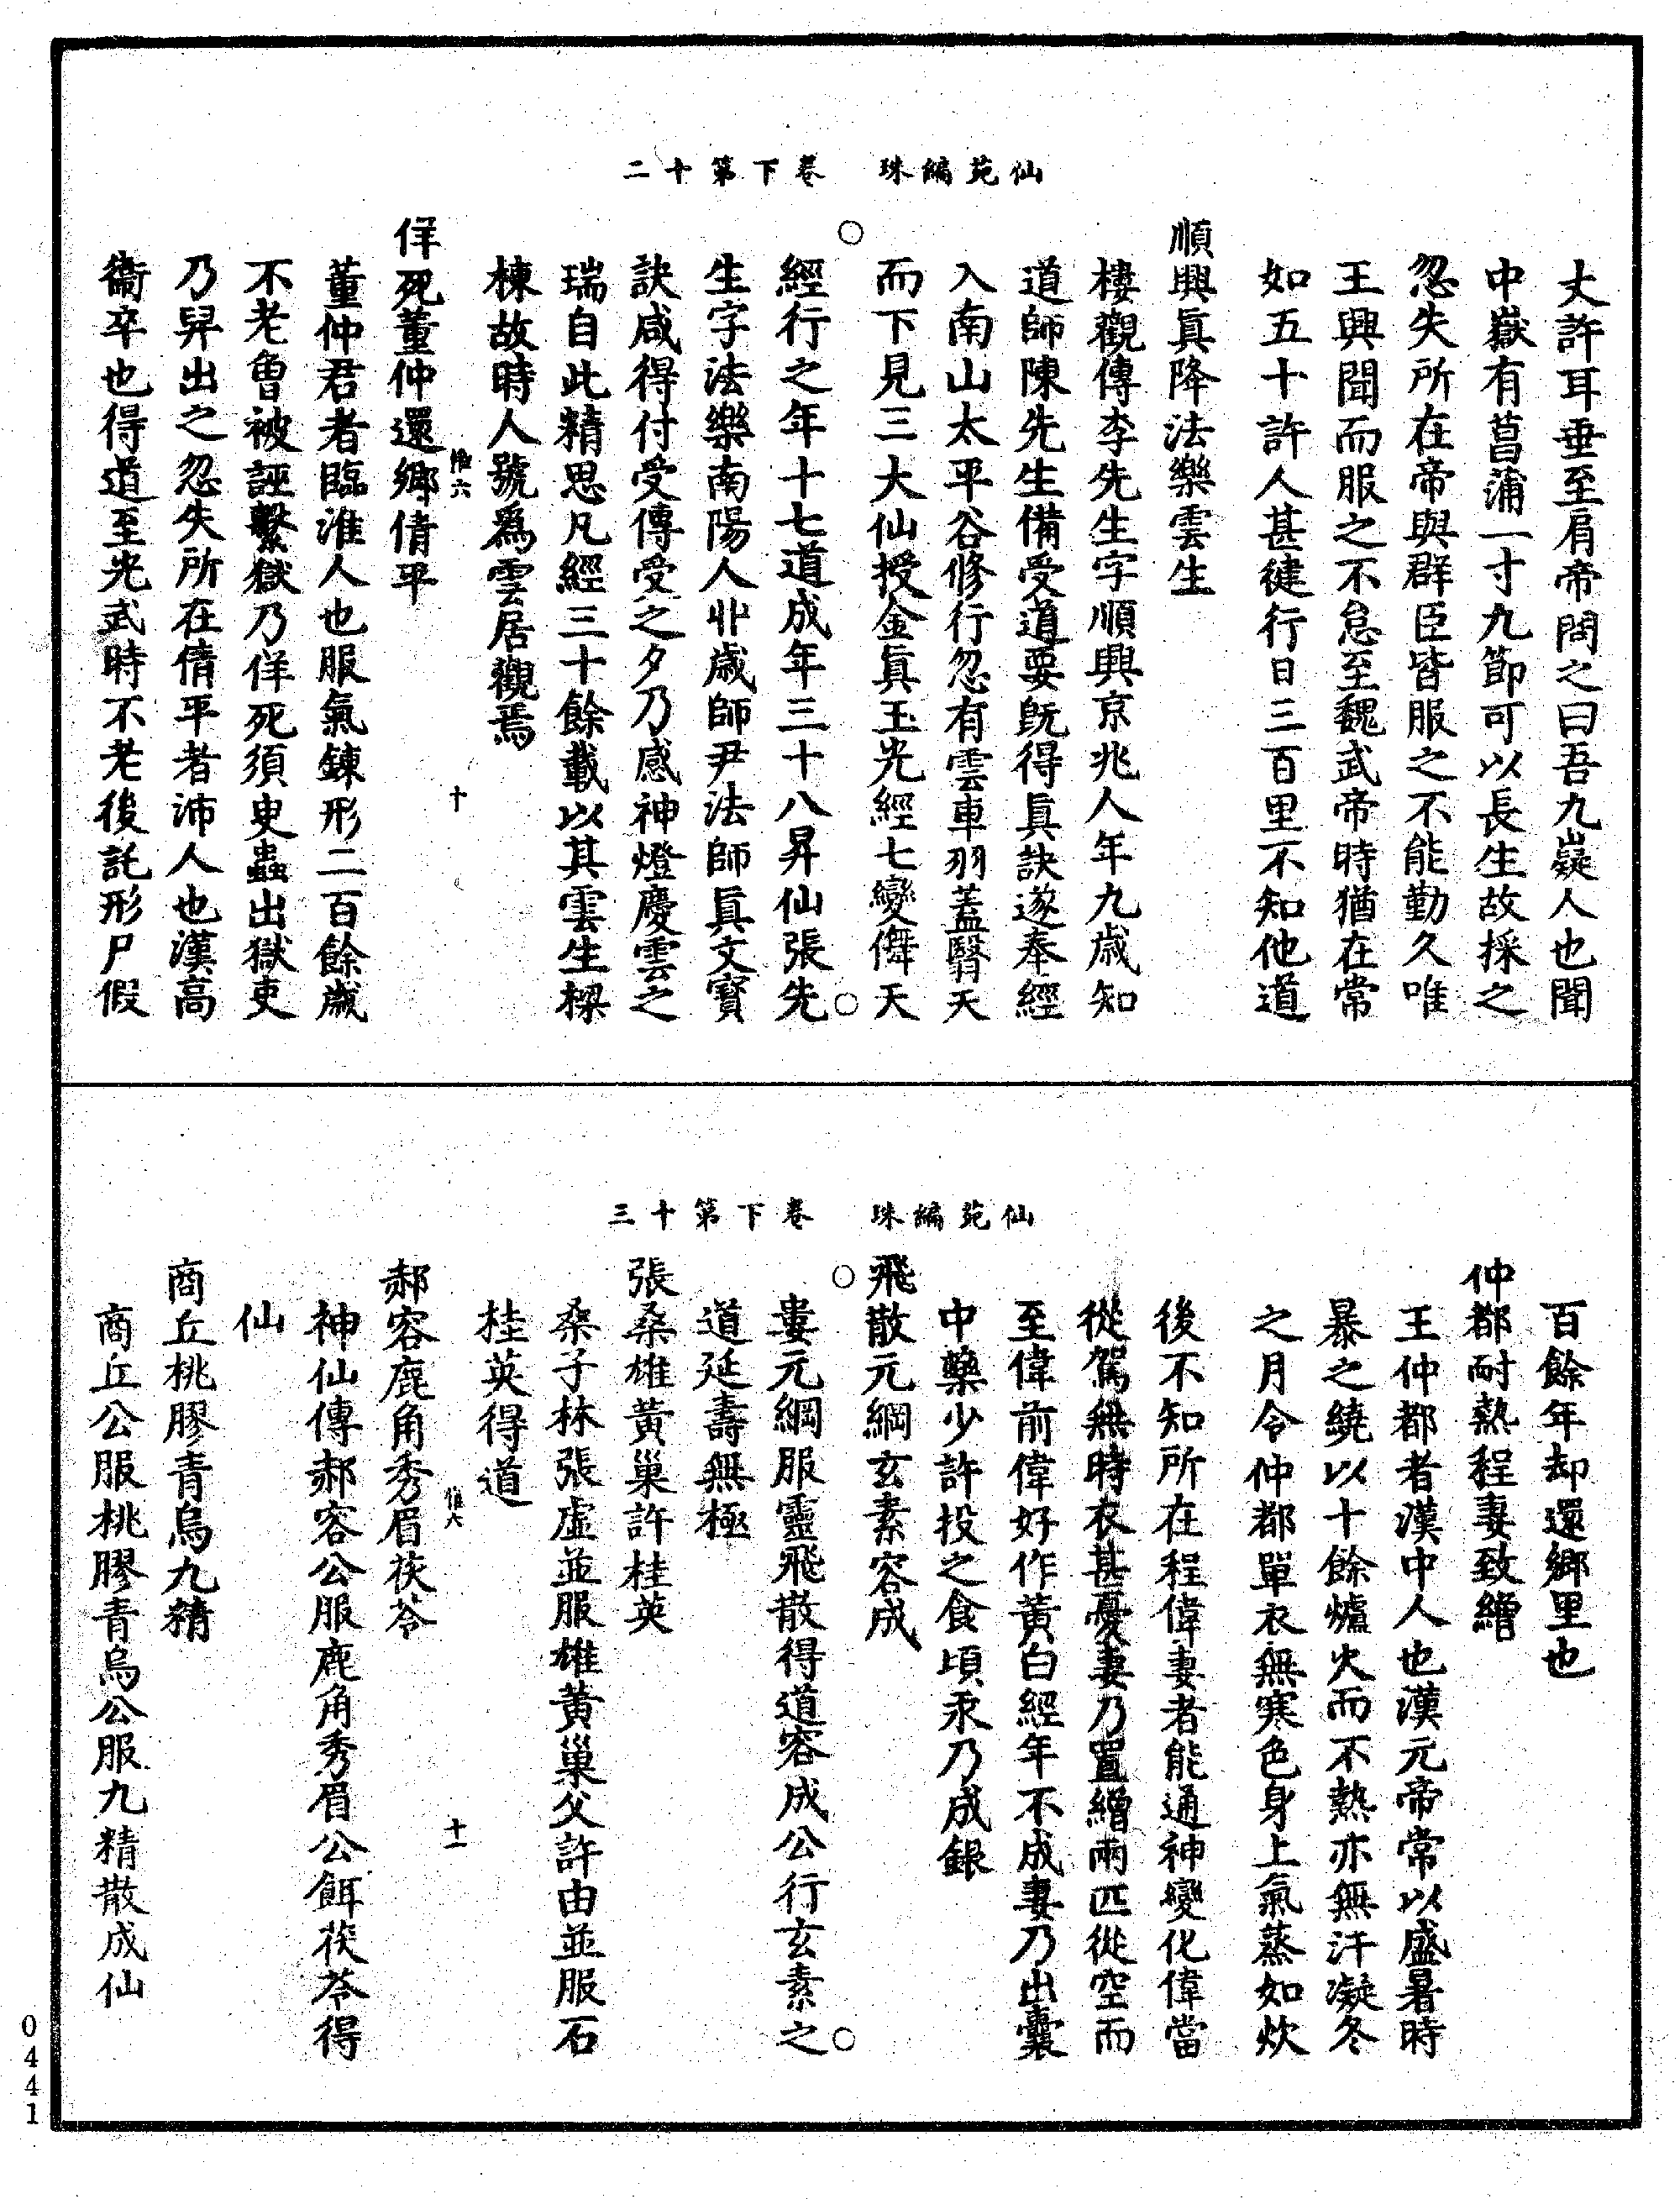 仙苑編珠　卷下第十二
丈許耳垂至肩帝問之曰吾九嶷人也聞
中嶽有菖蒲一寸九節可以長生故採之
忽失所在帝與群臣皆服之不能勤久唯
王興聞而服之不怠至魏武帝時猶在常
如五十許人甚健行日三百里不知他道
順興眞降法樂雲生
樓觀傳李先生字順興京兆人年九歲知
道師陳先生備受道要既得眞訣遂奉經
入南山太平谷修行忽有雲車羽蓋翳天
而下見三大仙授金眞玉光經七變儛天
經行之年十七道成年三十八昇仙張先
生字法樂南陽人丱歲師尹法師眞文寶
訣咸得付受傳受之夕乃感神燈慶雲之
瑞自此精思凡經三十餘載以其雲生樑
棟故時人號爲雲居觀焉
惟六　十
佯死董仲還鄉倩平
董仲君者臨淮人也服氣鍊形二百餘歲
不老魯被誣繫獄乃佯死須臾蟲出獄吏
乃舁出之忽失所在倩平者沛人也漢高
衞卒也得道至光武時不老後託形尸假
仙苑編珠　卷下第十三
百餘年却還鄉里也
仲都耐熱程妻致繒
王仲都者漢中人也漢元帝常以盛暑時
暴之繞以十餘爐火而不熱亦無汗凝冬
之月令仲都單衣無寒色身上氣蒸如炊
後不知所在程偉妻者能通神變化偉當
從駕無時衣甚憂妻乃置繒兩匹從空而
至偉前偉好作黃白經年不成妻乃出囊
中藥少許投之食頃汞乃成銀
飛散元綱玄素容成
婁元綱服靈飛散得道容成公行玄素之
道延壽無極
張桑雄黃巢許桂英
桑子林張虛並服雄黃巢父許由並服石
桂英得道
惟六　十一
郝容鹿角秀眉茯苓
神仙傳郝容公服鹿角秀眉公餌茯苓得
仙
商丘桃膠青烏九精
商丘公服桃膠青烏公服九精散成仙
0441